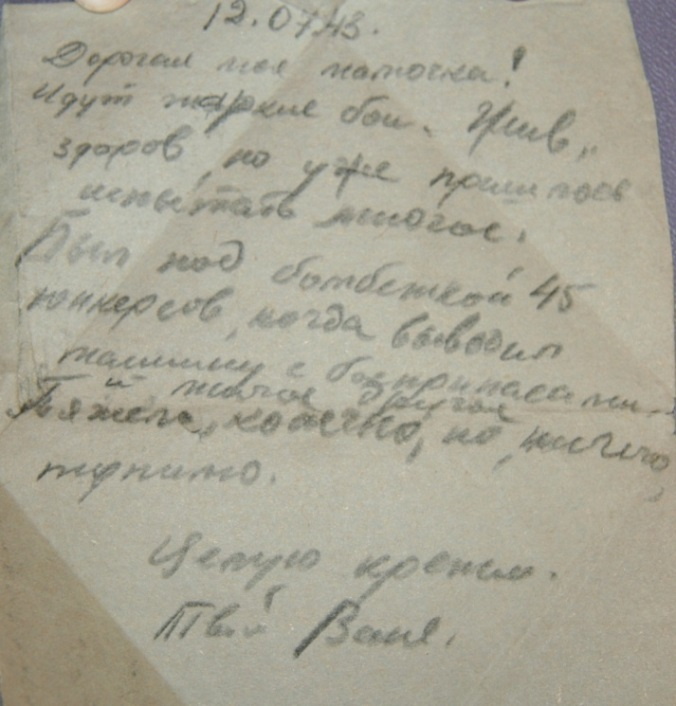 12.07.43.
Дорогая моя мамочка!
Идут жаркие бои. Жив,
здоров, но уже пришлось
испытать многое.
Был под бомбежкой 45
юнкерсов, когда выводил
машину с боеприпасами
и многое другое
Тяжело, конечно, но, ничего,
терпимо.
Целую крепко.
Твой Ваня.